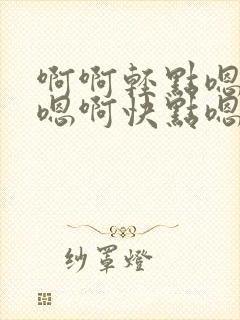 啊啊轻點嗯
嗯啊快點嗯
纱罩燈